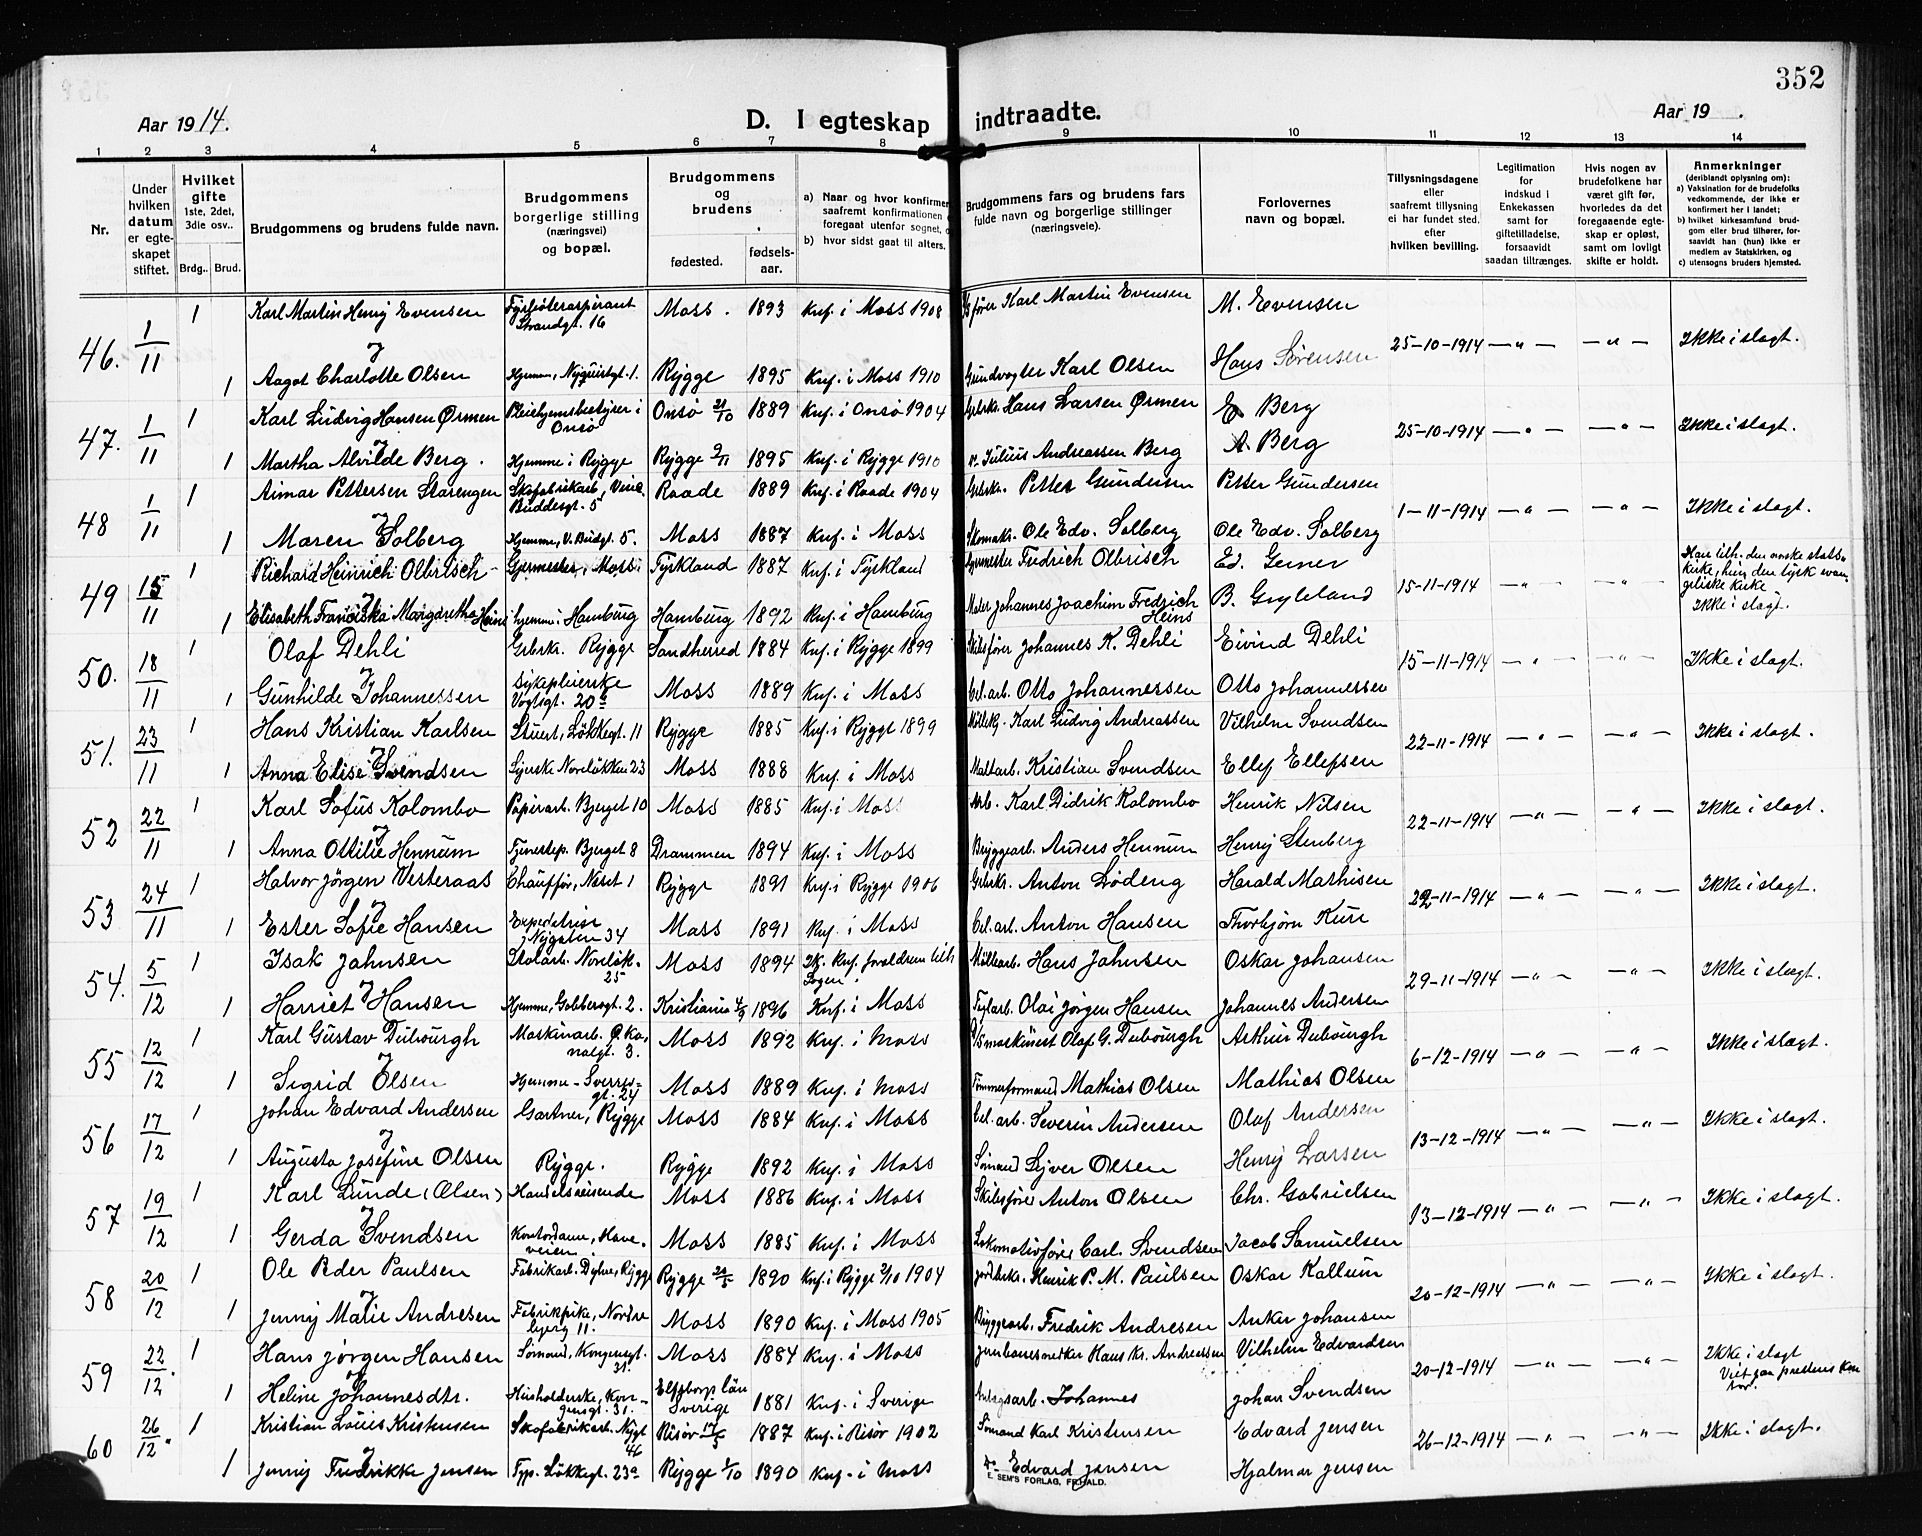 352
Aar 1914.
D. I egteskap indtraadte.
Aar 19 .
1 2 3 4 5 6 7 8 9 10 11 12 13 14
Nr.
Under hvilken datum er egteskapet stiftet.
Hvilket gifte 1ste, 2det, 3die osv..
Brdg.. Brud.
Brudgommens og brudens fulde navn.
Brudgommens borgerlige stilling (næringsvei) og bopæl.
Brudgommens og brudens
fødested. fødselsaar.
a) Naar og hvor konfirmer
saafremt konfirmationen
foregaat utenfor sognet,
b) hvor sidst gaat til alters.
Brudgommens fars og brudens fars fulde navn og borgerlige stillinger (næringsveie).
Forlovernes navn og bopæl.
Tillysningsdagene eller saafremt tillysning ei har fundet sted. efter hvilken bevilling.
Legitimation for indskud i Enkekassen samt for giftetilladelse, forsaavidt saadan tiltrænges.
Hvis nogen av brudefolkene har været gift før, hvorledes da det foregaaende egteskap er opløst, samt om lovligt skifte er holdt.
Anmerkninger (deriblandt oplysning om):
a) Vaksination for de brudefolks vedkommende, der ikke er konfirmert her i landet;
b) hvilket kirkesamfund brudgom eller brud tilhører, forsaavidt han (hun) ikke er medlem av Statskirken, og
c) utensogns bruders hjemsted.
46. 1/11 1 Karl Martin Henry Evensen Fyrbøteraspirant Strandgt. 16 Moss. 1893 Knf. i Moss 1908 fører Karl Martin Evensen M. Evensen 25-10-1914 — „ — — „ — Ikke i slægt.
og
1 Aagot Charlotte Olsen Hjemme, Nyquistgt. 1. Rygge 1895 Knf. i Moss 1910 Karl Olsen Hans Sørensen
47. 1/11 1 Karl Ludvig Hansen Ørmen Pleiehjemsbestyrer i Onsø Onsø 21/10 1889 Knf. i Onsø 1904 Grbrk. Hans Larsen Ørmen E Berg 25-10-1914 — „ — — „ — Ikke i slægt.
og
1 Martha Alvilde Berg. Hjemme i Rygge Rygge 9/11 1895 Knf. i Rygge 1910 Julius Andreassen Berg A. Berg
48 1/11 1 Aimar Pettersen Starengen Skofabrikarb., Vinc. Buddesgt. 5 Raade 1889 Knf. i Raade 1904 Grbrk. Petter Gundersen Petter Gundersen 1-11-1914 — „ — — „ — Ikke i slægt.
og
1 Maren Solberg Hjemme, V. Budgt. 5. Moss 1887 Knf. i Moss Skomakr. Ole Edv. Solberg Ole Edv. Solberg
49 15/11 1 Richard Heinrich Olbrisch Gjermester, Moss. Tyskland 1887 Knf. i Tyskland Fredrich Olbrisch Ed. Gerner 15-11-1914 — „ — — „ — Han tilh. den norske statskirke, hun den tysk evangeliske kirke Ikke i slægt.
og
1 Elisabeth Franciska Margaretha Heins hjemme i Hamburg Hamburg 1892 Knf. i Hamburg Maler Johannes Joachim Fredrich Heins B. Gryteland
50. 18/11 1 Olaf Dehli Grbrk. Rygge Sandherred 1884 Knf. i Rygge 1899 Skibsfører Johannes K. Dehli Eivind Dehli 15-11-1914 — „ — — „ — Ikke i slægt.
og
1 Gunhilde Johannessen Sykepleierske Vogtsgt. 20 Moss 1889 Knf. i Moss Cel. arb. Otto Johannessen Otto Johannessen
51. 23/11 1 Hans Kristian Karlsen Stuert, Løkkegt. 11 Rygge 1885 Knf. i Rygge 1899 Karl Ludvig Andreassen Vilhelm Svendsen 22-11-1914 — „ — — „ — Ikke i slægt.
og
1 Anna Elise Svendsen Syerske Noreløkken 23 Moss 1888 Knf. i Moss Maltarb. Kristian Svendsen Ellef Ellefsen
52 22/11 1 Karl Sofus Kolombo Papirarb. Bjerget 10 Moss 1885 Knf. i Moss Arb. Karl Didrik Kolombo Henrik Nilsen 22-11-1914 — „ — — „ — Ikke i slægt.
og
1 Anna Ottilie Hennum Tjenestep. Bjerget 8 Drammen 1894 Knf. i Moss Bryggearb. Anders Hennum Henry Stenberg
53 24/11 1 Halvor Jørgen Vesteraas Chauffør, Næset 1 Rygge 1891 Knf. i Rygge 1906 Grbrk. Anton Lødeng Harald Mathisen 22-11-1914 — „ — — „ — Ikke i slægt.
og
1 Ester Sofie Hansen Expeditrise Nygaten 34 Moss 1891 Knf. i Moss Cel. arb. Anton Hansen Thorbjørn Kure
54. 5/12 1 Isak Jahnsen Stolarb. Noreløk. 25 Moss 1894 Ik. Knf. foreldrene tilh. Logen. Møllearb. Hans Jahnsen Oskar Johansen 29-11-1914 — „ — — „ — Ikke i slægt.
og
1 Harriet Hansen Hjemme, Solbergt. 2. Kristiania 4/9 1896 Knf. i Moss Teglarb. Olai Jørgen Hansen Johannes Andersen
55 12/12 1 Karl Gustav Dubourgh Maskinarb. Ø. Kanalgt. 3. Moss 1892 Knf. i Moss D/S maskinist Olaf G. Dubourgh Arthur Dubourgh 6-12-1914 — „ — — „ — Ikke i slægt.
og
1 Sigrid Olsen Hjemme — Sverresgt. 24 Moss 1889 Knf. i Moss Tømmerformand Mathias Olsen Mathias Olsen
56 17/12 1 Johan Edvard Andersen Gartner, Rygge Moss 1884 Knf. i Moss Cel. arb. Severin Andersen Olaf Andersen 13-12-1914 — „ — — „ — Ikke i slægt.
og
1 Augusta Josefine Olsen Rygge. Rygge 1892 Knf. i Moss Sømand Syver Olsen Henry Larsen
57 19/12 1 Karl Lunde (Olsen) Handelsreisende Moss 1886 Knf. i Moss Skibsfører Anton Olsen Chr. Gabrielsen 13-12-1914 — „ — — „ — Ikke i slægt.
og
1 Gerda Svendsen Kontordame, Haveveien. Moss 1885 Knf. i Moss Lokomotivfører Carl. Svendsen Jacob Samuelsen
58 20/12 1 Ole Peder Paulsen Fabrikarb. Dylve, Rygge Rygge 24/5 1890 Knf. i Rygge 2/10 1904 Jordbrk. Henrik P. M. Paulsen Oskar Kallum 20-12-1914 — „ — — „ — Ikke i slægt.
og
1 Jenny Marie Andresen Fabrikpike, Nordre bjerg 11. Moss 1890 Knf. i Moss 1905 Bryggearb. Fredrik Andresen Anker Johansen
59 22/12. 1 Hans Jørgen Hansen Sømand, Kongensgt. 31. Moss 1884 Knf. i Moss Hans Kr. Andreassen Vilhelm Edvardsen 20-12-1914 — „ — — „ — Ikke i slægt Viet paa prestens kontor.
og
1 Heline Johannesdtr. Husholderske, Kongensgt. 31. Elfsborgs län Sverige 1881 Knf. i Sverige Anlægsarb. Johannes Johan Svendsen
60 26/12. 1 Kristian Louis Kristensen Skofabrikarb. Nygt 46 Risør 17/5 1887 Knf. i Risør 1902 Sømand Karl Kristensen Edvard Jensen 26-12-1914 — „ — — „ — Ikke i slægt.
og
1 Jenny Fredrikke Jensen Typ. Løkkegt. 23a Rygge 1/10 1890 Knf. i Moss Do Edvard Jensen Hjalmar Jensen
E. SEM'S FORLAG, FR.HALD.